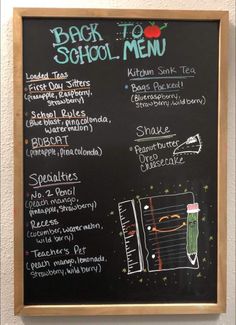 BACK TO
SCHOOL MENU
Loaded Teas
First Day Jitters
(pineapple, Raspberry,
Strawberry)
School Rules
(Blue blast, pina colonda,
watermelon)
BOBCAT
(pineapple, pina colonda)
Specialties
No. 2 Pencil
(peach mango,
pineapple, Strawberry)
Recess
(cucumber, watermelon,
wild berry)
Teacher's Pet
(peach mango, lemonade,
Strawberry, wild berry)
Kitchen Sink Tea
Bags Packed!
(Blueberryraspberry,
Strawberry, wild berry)
Shake
Peanutbutter
Oreo
Cheesecake